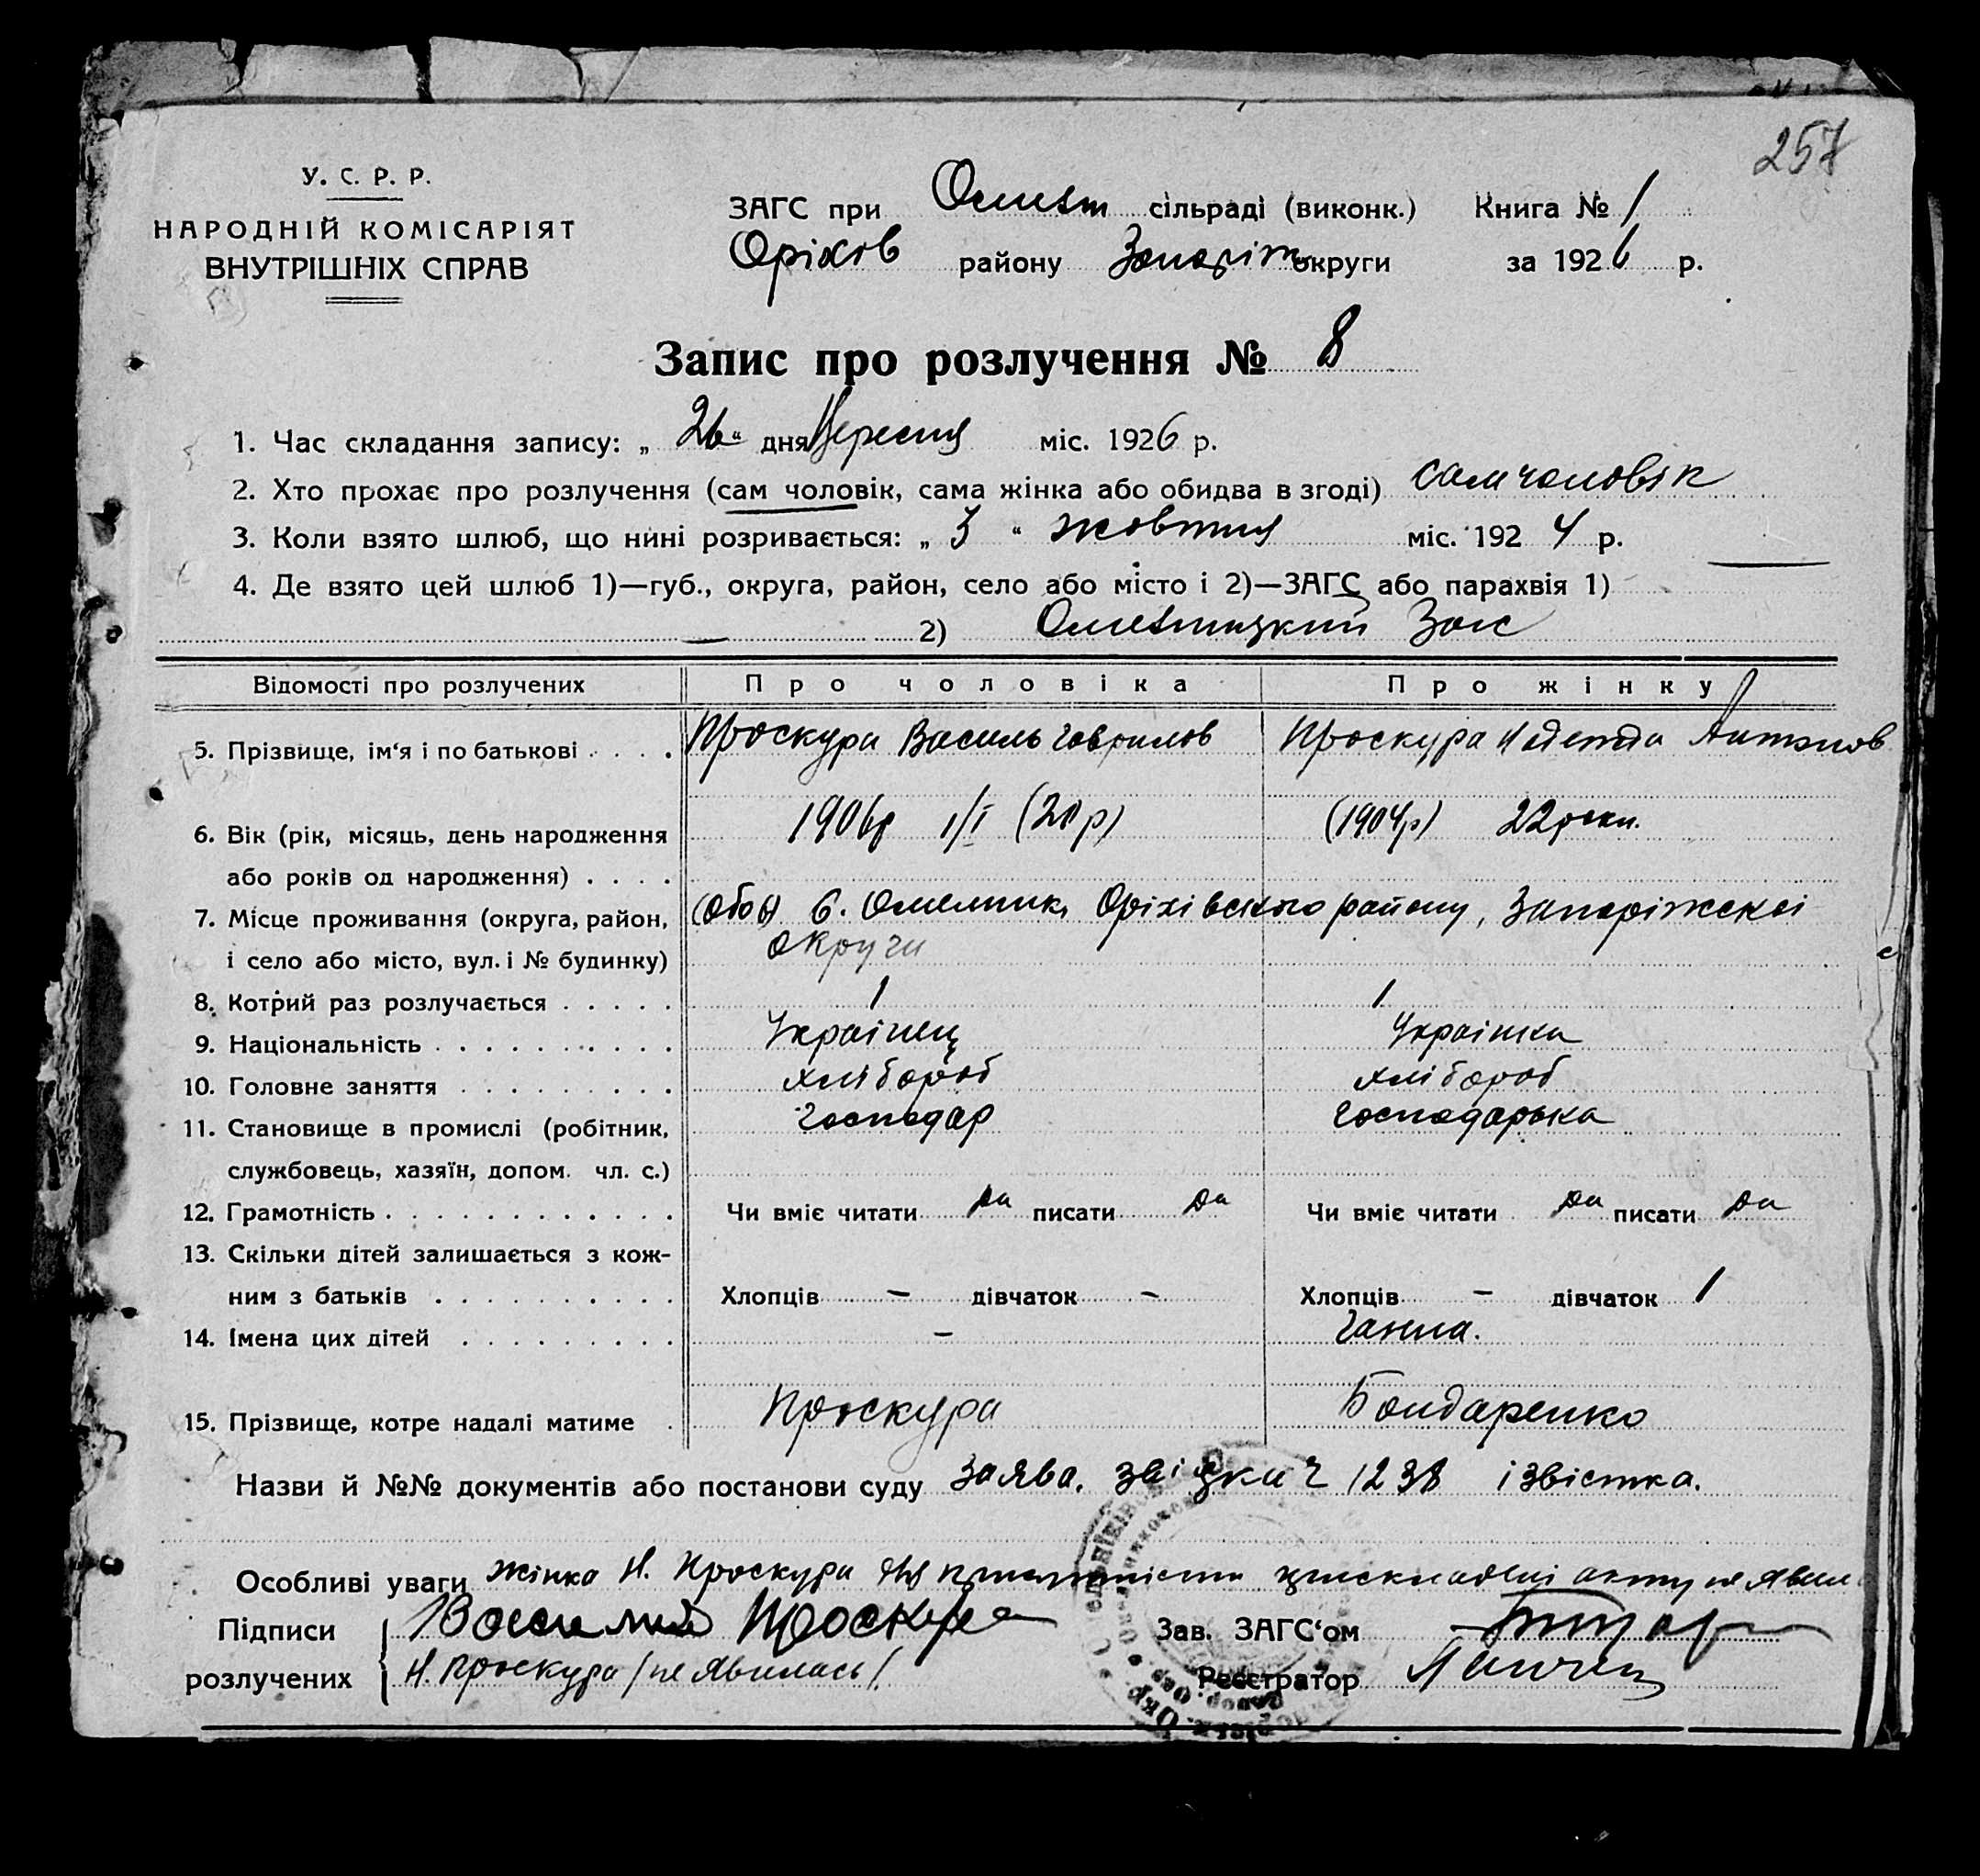 257
У. С. Р. Р.
НАРОДНІЙ КОМІСАРІЯТ
ВНУТРІШНІХ СПРАВ
ЗАГС при сільраді (виконк.) Книга № 1
Оріхов району Запоріж округи за 1926 р.
Запис про розлучення № 8
1. Час складання запису: „ 26 “ дня Вересня міс. 1926 р.
2. Хто прохає про розлучення (сам чоловік, сама жінка або обидва в згоді) сам чоловік
3. Коли взято шлюб, що нині розривається: „ 3 “ жовтня міс. 1924 р.
4. Де взято цей шлюб 1)—губ., округа, район, село або місто і 2)—ЗАГС або парахвія 1) —
— 2) Загс
Відомості про розлучених Про чоловіка Про жінку
5. Прізвище, ім‘я і по батькові . . . . Проскура Василь Гаврилов Проскура Антонов
6. Вік (рік, місяць, день народження 1906р 1/I (20 р) (1904р) 22 роки.
або років од народження) . . . .
7. Місце проживання (округа, район, (обоє) с. Омельник, Оріхівського району, Запоріжскоі
і село або місто, вул. і № будинку) округи
8. Котрий раз розлучається . . . . . 1 1
9. Національність . . . . . . . . . . Українец Українка
10. Головне заняття . . . . . . . . . хлібороб хлібороб
11. Становище в промислі (робітник, Господар Господарька
службовець, хазяїн, допом. чл. с.)
12. Грамотність . . . . . . . . . . . . Чи вміє читати да писати да Чи вміє читати да писати да
13. Скільки дітей залишається з кож-
ним з батьків . . . . . . . . . . Хлопців – дівчаток – Хлопців – дівчаток 1
14. Імена цих дітей . . . . . . . . . – Ганна.
15. Прізвище, котре надалі матиме . Проскура Бондаренко
Назви й №№ документів або постанови суду заява. ч 1238 ізвістка.
Особливі уваги Жінка Н. Проскура акту не явил
Підписи Василий Проскура Зав. ЗАГС‘ом
розлучених Н. Проскура /не явилась/ Реєстратор